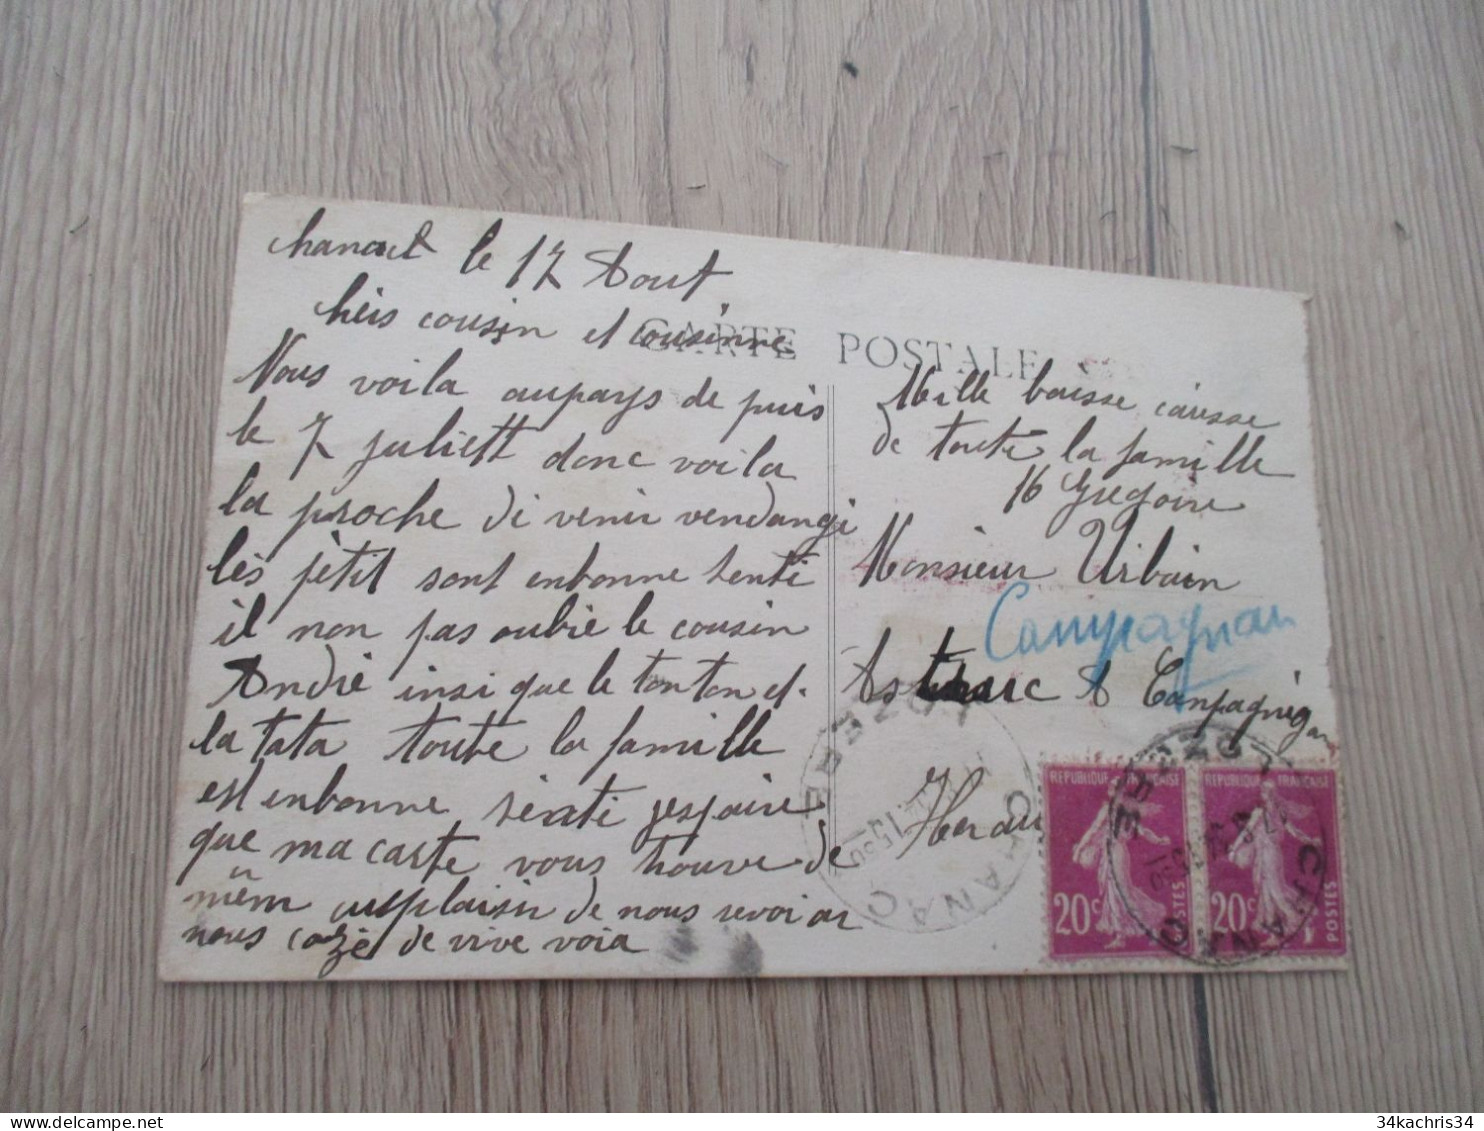 chanac le 17 Aout
chèis cousin et cousinne
CARTE POSTALE
Nous voila aupays de puis
le 7 juliett donc voila
la proche di venir vendangi
lès pètit sont enbonne senti
il non pas oublie le cousin
André insi que le tonton et
la tata toute la famille
est enbonne senti jespaire
que ma carte vous trouve de
mêm au plaisir de nous revoiar
nous cozé de vive voia
Mille baisse caresse
de toute la famille
16 Gregoire
Monsieur Urbain
Campagnan
Astruc A Campagnan
Herau
LOZERE
CHANAC
REPUBLIQUE FRANÇAISE
20c
POSTES
REPUBLIQUE FRANÇAISE
20c
POSTES
LOZERE
CHANAC
34kachris34